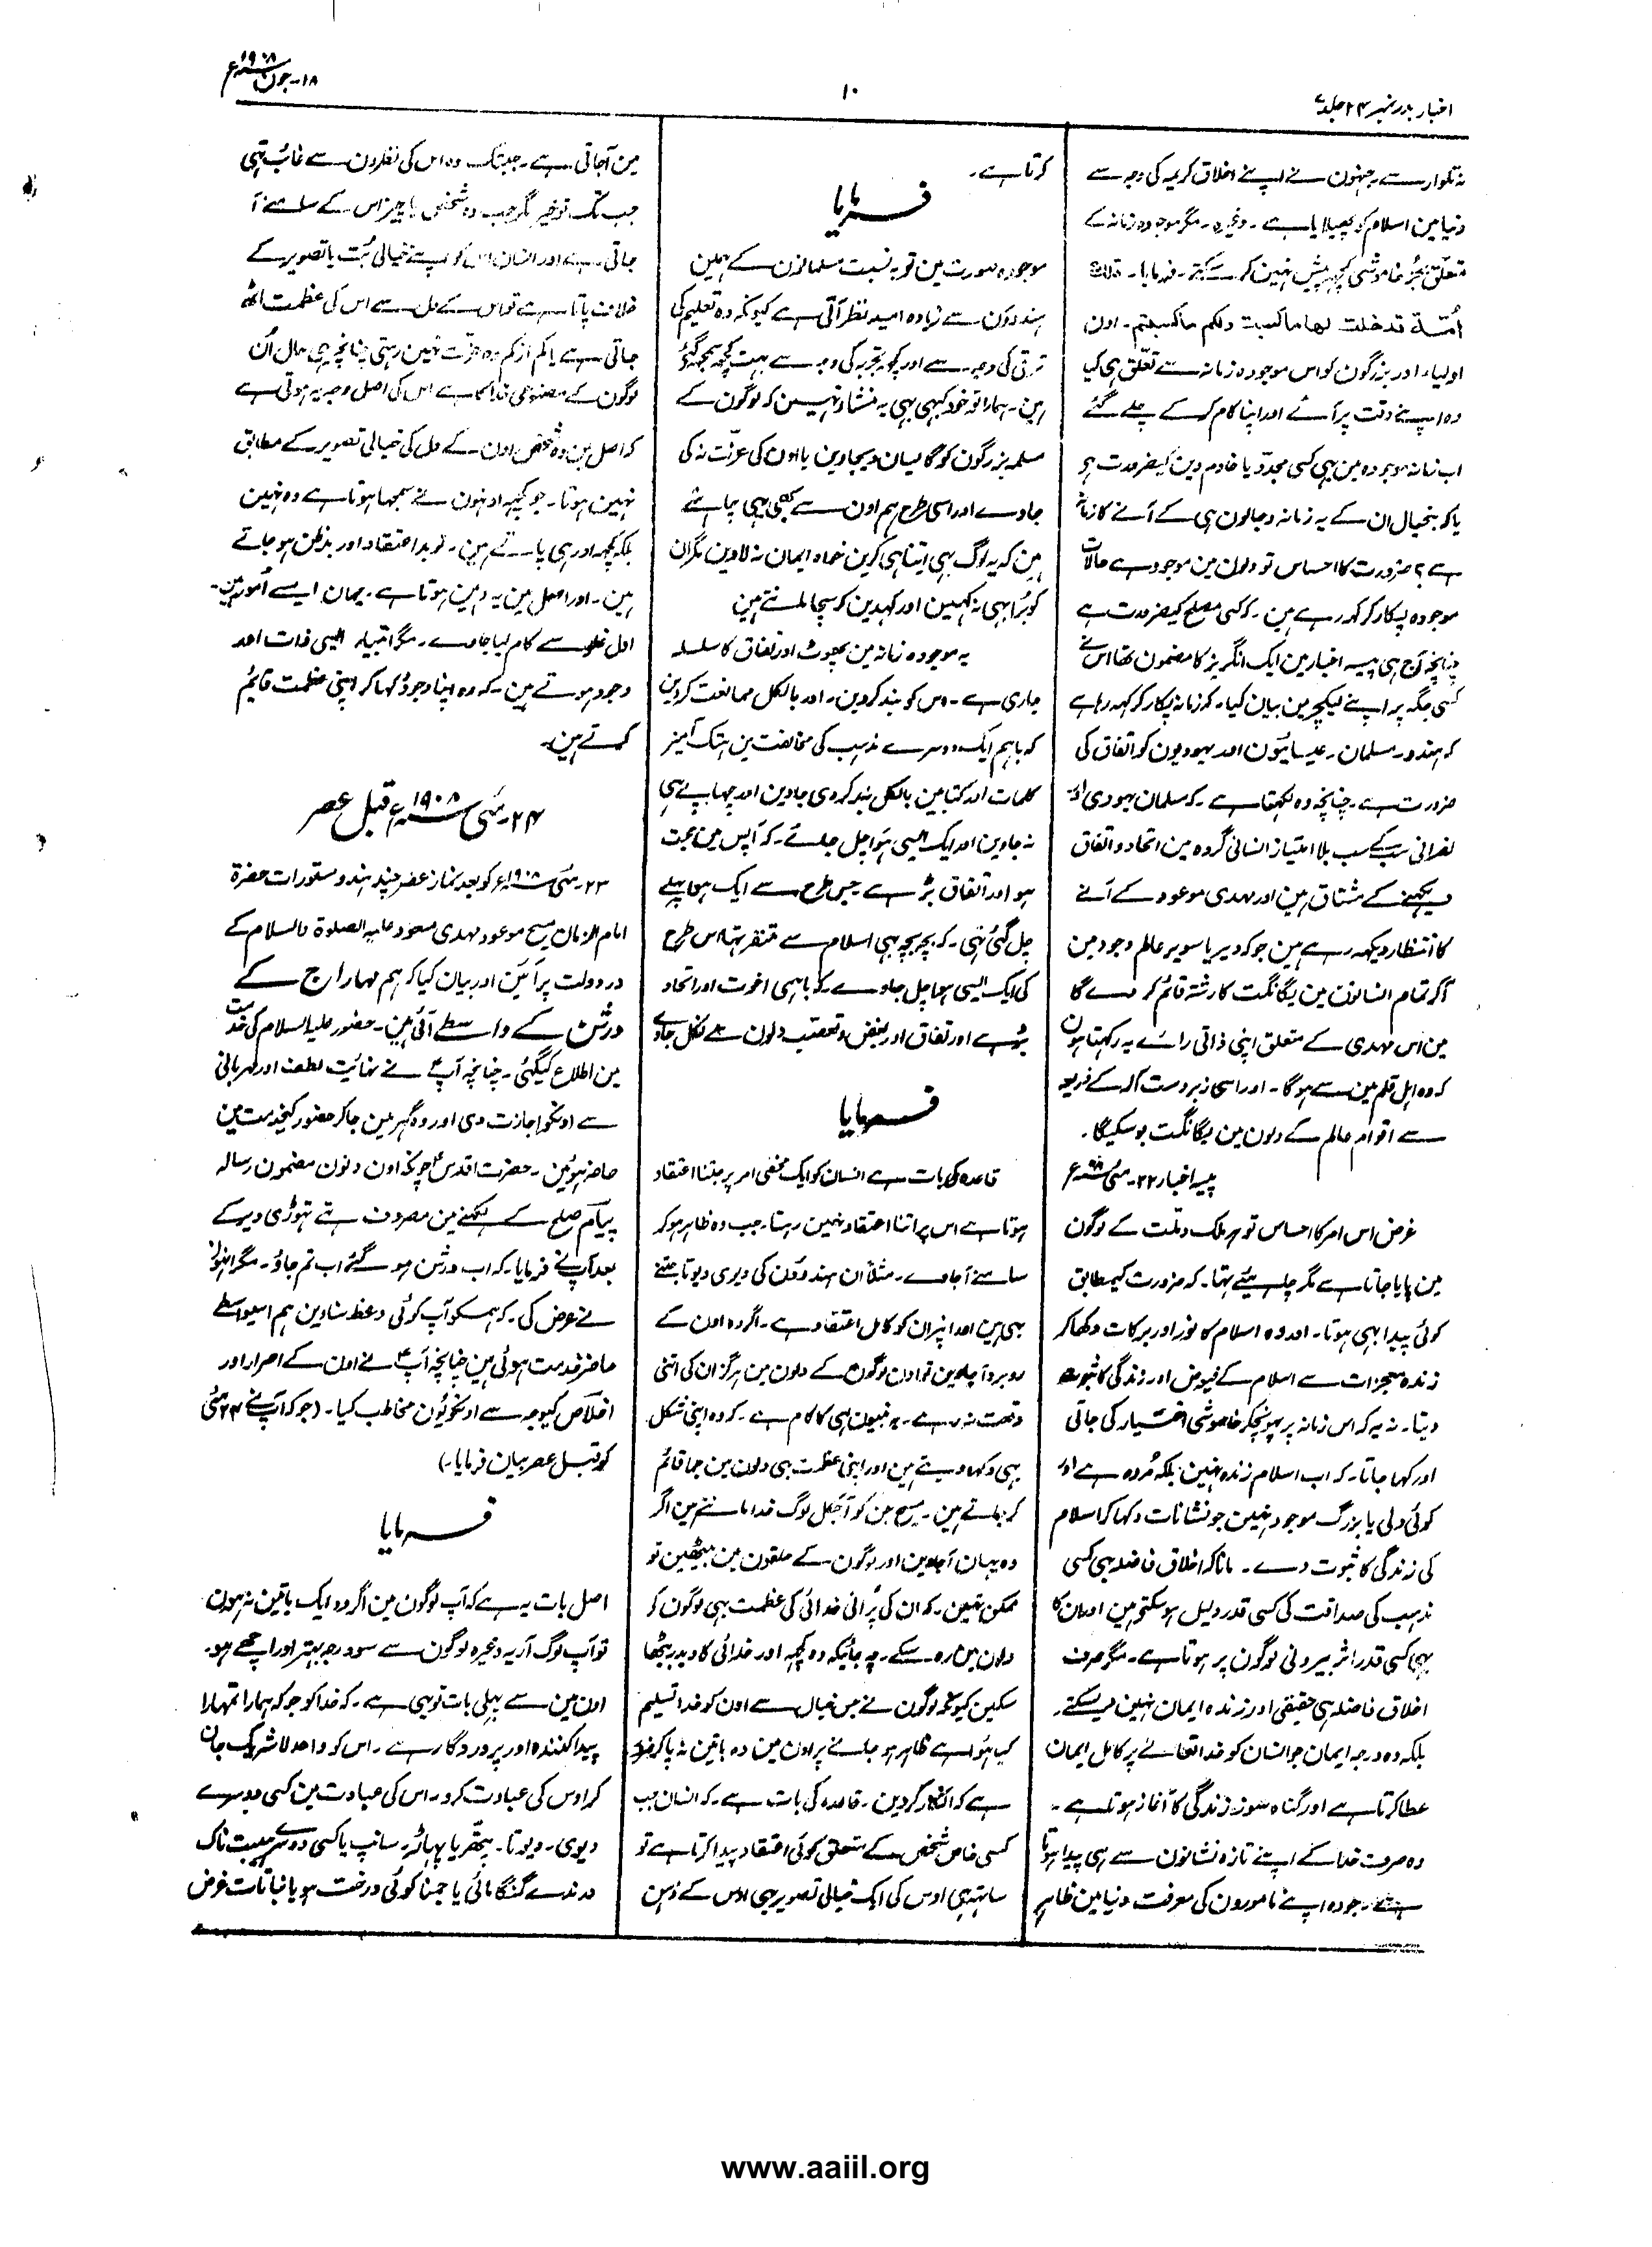 اخبار بدر نمبر ۲۴ جلد ۷
۱۰
۱۸-جون ۱۹۰۸ء
نہ تلوار سے۔ جنہون نے اپنے اخلاق کریمہ کی وجہ سے
دنیا مین اسلام کو پھیلایا ہے۔ وغیرہ۔ مگر موجودہ زمانہ کے
متعلق بجز خاموشی کچھ پیش نہین کر سکتے۔ فرمایا۔ تلک
اُمّۃ قد خلت لھا ما کسبت ولکم ما کسبتم۔ اون
اولیاء اور بزرگون کو اس موجودہ زمانہ سے تعلّق ہی کیا
وہ اپنے وقت پر آئے اور اپنا کام کر کے چلے گئے
اب زمانہ موجودہ مین بہی کسی مجدّد یا خادم دین کیضرورت ہو
یا کہ بخیال ان کے یہ زمانہ دجالون ہی کے آنے کا زمانہ
ہے؟ ضرورت کا احساس تو دلون مین موجود ہے حالات
موجودہ پکار کر کہہ رہے ہین۔ کہ کسی مصلح کیضرورت ہے
چنانچہ آج ہی پیسہ اخبار مین ایک انگریز کا مضمون تھا اس نے
کسی جگہ پر اپنے لیکچر مین بیان کیا۔ کہ زمانہ پکار کر کہہ رہا ہے
کہ ہندو۔ مسلمان۔ عیسائیون اور یہودیون کو اتفاق کی
ضرورت ہے۔ چنانچہ وہ لکھتا ہے۔ کہ مسلمان یہودی اور
نصرانی سب کے سب بلا امتیاز انسانی گروہ مین اتحاد و اتفاق
دیکہنے کے مشتاق ہین اور مہدی موعود کے آنے
کا انتظار دیکہہ رہے ہین جو کہ دیر یا سویر عالم وجود مین
آکر تمام انسانون مین یگانگت کا رشتہ قائم کر دے گا
مین اس مہدی کے متعلق اپنی ذاتی رائے یہ رکہتا ہون
کہ وہ اہل قلم مین سے ہوگا۔ اور اسی زبردست آلہ کے ذریعہ
سے اقوام عالم کے دلون مین یگانگت ہو سکیگا۔
پیسہ اخبار ۲۲-مئی ۰۸ء
غرض اس امر کا احساس تو ہر ملک و ملّت کے لوگون
مین پایا جاتا ہے مگر چاہیئے تہا۔ کہ ضرورت کیمطابق
کوئی پیدا بہی ہوتا۔ اور وہ اسلام کا نور اور برکات دکھا کر
زندہ معجزات سے اسلام کے فیوض اور زندگی کا ثبوت
دیتا۔ نہ یہ کہ اس زمانہ پر پہونچکر خاموشی اختیار کی جاتی
اور کہا جاتا۔ کہ اب اسلام زندہ نہین بلکہ مُردہ ہے اور
کوئی ولی یا بزرگ موجود نہین جو نشانات دکہا کر اسلام
کی زندگی کا ثبوت دے۔ مانا کہ اخلاق فاضلہ بہی کسی
مذہب کی صداقت کی کسی قدر دلیل ہو سکتے ہین اور ان کا
بہی کسی قدر اثر بیرونی لوگون پر ہوتا ہے۔ مگر صرف
اخلاق فاضلہ ہی حقیقی اور زندہ ایمان نہین دے سکتے۔
بلکہ وہ درجہ ایمان جو انسان کو خدا تعالےٰ پر کامل ایمان
عطا کرتا ہے اور گناہ سوز زندگی کا آغاز ہوتا ہے۔
وہ صرف خدا کے اپنے تازہ نشانون سے ہی پیدا ہوتا
ہے۔ جو وہ اپنے مامورون کی معرفت دنیا مین ظاہر
کرتا ہے۔
فرمایا
موجودہ صورت مین تو بہ نسبت مسلمانون کے ہمین
ہندوؤن سے زیادہ امید نظر آتی ہے کیونکہ وہ تعلیم کی
ترقی کی وجہ سے اور کچھ تجربہ کی وجہ سے بہت کچھ سمجھ گئے
ہین۔ ہمارا تو خود کبہی بہی یہ منشاء نہین کہ لوگون کے
مسلمہ بزرگون کو گالیان دیجاوین یا اون کی عزّت نہ کی
جاوے اور اسی طرح ہم اون سے بھی یہی چاہتے
ہین کہ یہ لوگ بہی اتنا ہی کرین خواہ ایمان نہ لاوین مگر ان
کو بُرا بہی نہ کہین اور کہدین کہ سچا مانتے ہین
یہ موجودہ زمانہ مین پھوٹ اور نفاق کا سلسلہ
جاری ہے۔ اس کو بند کر دین۔ اور بالکل ممانعت کر دین
کہ باہم ایک دوسرے مذہب کی مخالفت مین ہتک آمیز
کلمات اور کتابین بالکل بند کر دی جاوین اور چھاپنے ہی
نہ جاوین اور ایک ایسی ہوا چل جائے۔ کہ آپس مین محبت
ہو اور اتفاق بڑھے جس طرح سے ایک ہوا پہلے
چل گئی تہی۔ کہ بچہ بچہ بہی اسلام سے متنفر تہا اس طرح
کی ایک ایسی ہوا چل جاوے۔ کہ باہمی اخوت اور اتحاد
بڑھے اور نفاق اور بغض و تعصّب دلون سے نکل جاوے
فرمایا
قاعدہ کی بات ہے انسان کو ایک مخفی امر پر جتنا اعتقاد
ہوتا ہے اس پر اتنا اعتقاد نہین رہتا۔ جب وہ ظاہر ہو کر
سامنے آجاوے۔ مثلاً ان ہندوؤن کی دیوی دیوتا جتنے
بہی ہین اور اُنپر ان کو کامل اعتقاد ہے۔ اگر وہ اون کے
روبرو آجاوین تو اون لوگون کے دلون مین ہرگز ان کی اتنی
وقعت نہ رہے۔ یہ نبیون ہی کا کام ہے۔ کہ وہ اپنی شکل
بہی دکہا دیتے ہین اور اپنی عظمت بہی دلون مین جا قائم
کر جاتے ہین۔ مسیح جن کو آجکل لوگ خدا مانتے ہین اگر
وہ یہان آجاوین اور لوگون کے حلقون مین بیٹھین تو
ممکن نہین۔ کہ ان کی پُرانی خدائی کی عظمت بہی لوگون کے
دلون مین رہ سکے۔ چہ جائیکہ وہ کچھ اور خدائی کا دبدبہ بٹھا
سکین کیونکہ لوگون نے جس خیال سے اون کو خدا تسلیم
کیا ہوا ہے ظاہر ہو جانے پر اون مین وہ باتین نہ پا کر ضرور
ہے کہ انکار کر دین۔ قاعدہ کی بات ہے۔ کہ انسان جب
کسی خاص شخص کے متعلق کوئی اعتقاد پیدا کرتا ہے تو
ساتہہ ہی اوس کی ایک خیالی تصویر بہی اوس کے ذہن
مین آجاتی ہے۔ جبتک وہ اس کی نظرون سے غائب تہی
جب تک تو خیر مگر جب وہ شخص یا چیز اس کے سامنے آ
جاتی ہے اور انسان اس کو اپنے خیالی بُت یا تصویر کے
خلاف پاتا ہے تو اس کے دل سے اس کی عظمت اٹھ
جاتی ہے یا کم از کم وہ عزت نہین رہتی چنانچہ یہی حال اُن
لوگون کے مصنوعی خدا کا ہے اس کی اصل وجہ یہ ہوتی ہے
کہ اصل مین وہ شخص اون کے دل کی خیالی تصویر کے مطابق
نہین ہوتا۔ جو کچھ اونہون نے سمجھا ہوتا ہے وہ نہین
بلکہ کچھ اور ہی پاتے ہین۔ تو بد اعتقاد اور بدظن ہو جاتے
ہین۔ اور اصل مین یہ دین ہوتا ہے۔ یہان ایسے اُمور مین۔
اول غلو سے کام لیا جاوے۔ مگر انبیاء ایسی ذات اور
وجود ہوتے ہین۔ کہ وہ اپنا وجود دُکہا کر اپنی عظمت قائم
کرتے ہین۔
۲۴-مئی ۱۹۰۸ء قبل عصر
۲۳-مئی ۱۹۰۸ء کو بعد نماز عصر چند ہندو مستورات حضرۃ
امام الزمان مسیح موعود مہدی مسعود علیہ الصلوۃ والسلام کے
در دولت پر آئین اور بیان کیا کہ ہم مہاراج کے
درشن کے واسطے آئی ہین۔ حضور علیہ السلام کی خدمت
مین اطلاع کیگئی۔ چنانچہ آپؑ نے نہائت لطف اور مہربانی
سے اونکو اجازت دی اور وہ گہر مین جا کر حضور کیخدمت مین
حاضر ہوئین۔ حضرت اقدسؑ چونکہ اون دنون مضمون رسالہ
پیآم صلح کے لکہنے مین مصروف تہے تہوڑی دیر کے
بعد آپ نے فرمایا۔ کہ اب درشن ہو گئے اب تم جاؤ۔ مگر انہون
نے عرض کی۔ کہ ہمکو آپ کوئی وعظ سناوین ہم اسیواسطے
حاضر خدمت ہوئی ہین چنانچہ آپؑ نے اون کے اصرار اور
اخلاص کیوجہ سے اونکو یُون مخاطب کیا۔ (جو کہ آپ نے ۲۴ مئی
کو قبل عصر بیان فرمایا۔)
فرمایا
اصل بات یہ ہے کہ آپ لوگون مین اگر دو ایک باتین نہ ہون
تو آپ لوگ آریہ وغیرہ لوگون سے سو درجہ بہتر اور اچھے ہو۔
اون مین سے پہلی بات تو یہی ہے۔ کہ خدا کو جو کہ ہمارا تمہارا
پیدا کنندہ اور پروردگار ہے۔ اس کو واحد لا شریک جان
کر اوس کی عبادت کرو۔ اس کی عبادت مین کسی دوسرے
دیوی۔ دیوتا۔ پتّھر یا پہاڑ۔ سانپ یا کسی دوسرے ہیبت ناک
درندے گنگا مائی یا جمنا کوئی درخت ہو یا نباتات غرض
www.aaiil.org